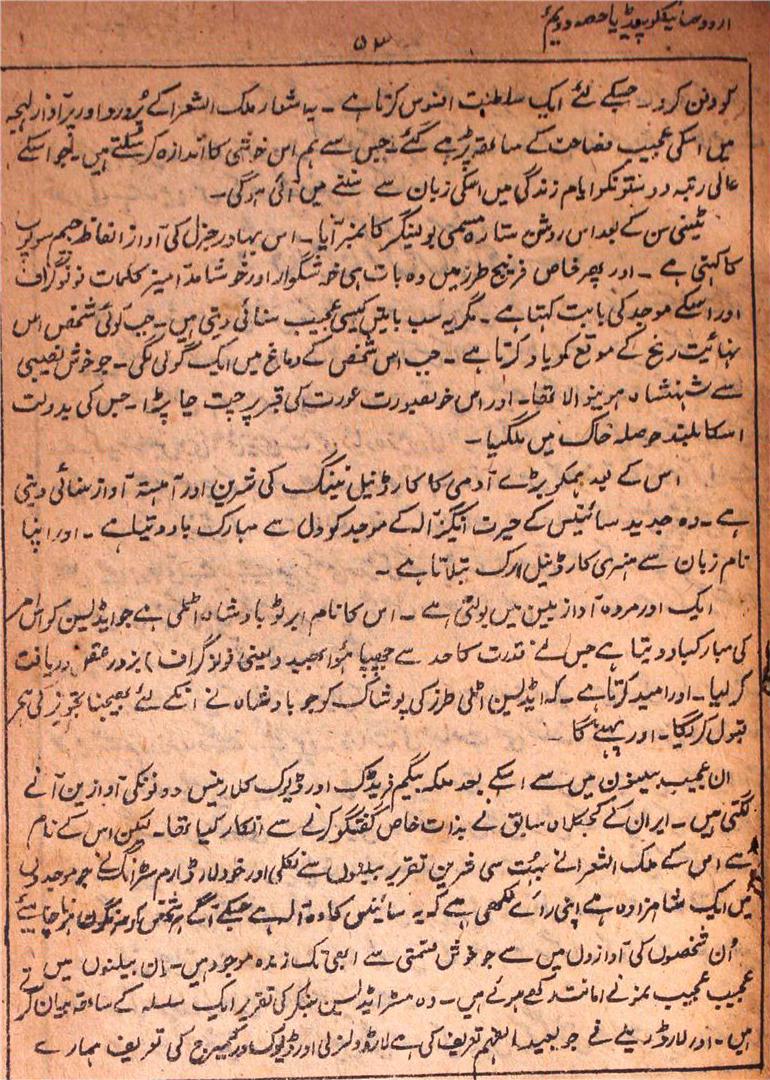 اردو سائیکلوپیڈیا حصہ دویم
۵۳
کو دفن کرو۔ جسکے لئے ایک سلطنت افسوس کرتا ہے۔ یہ اشعار ملک الشعرا کے پُر درد اور پر آواز لہجہ
میں اسکی عجیب فصاحت کے ساتھ پڑھے گئے۔ جس سے ہم اس خوشی کا اندازہ کر سکتے ہیں۔ جو اسکے
عالی رتبہ دوستونکو ایام زندگی میں اسکی زبان سے سننے میں آئی ہوگی۔
ٹینی سن کے بعد اس روشن ستارہ مسمی بولینگر کا نمبر آیا۔ اس بہادر جنرل کی آواز الفاظ
کا کہتی ہے۔ اور پھر خاص فرنچ طرز میں وہ بات ہی خوشگوار اور خوشامد آمیز کلمات فونوگراف
اور اسکے موجد کی بابت کہتا ہے۔ مگر یہ سب باتیں کیسی عجیب سنائی دیتی ہیں۔ جب کوئی شخص اس
نہائیت رنج کے موقع کو یاد کرتا ہے۔ جب اس شخص کے دماغ میں ایک گولی لگی۔ جو خوش نصیبی
سے شہنشاہ ہونیوالا تھا۔ اور اس خوبصورت عورت کی قبر پر چت جا پڑا۔ جس کی بدولت
اسکا بلند حوصلہ خاک میں ملگیا۔
اس کے بعد ہمکو بڑے آدمی کا کارڈنیل مینگ کی شرین اور آہستہ آواز سنائی دیتی
ہے۔ وہ جدید سائینس کے حیرت انگیز آلہ کے موجد کو دل سے مبارک باد دیتا ہے۔ اور اپنا
نام زبان سے ہنری کارڈنیل ارک بتلاتا ہے۔
ایک اور مردہ آواز بیلن میں بولتی ہے۔ اس کا نام امبرٹو بادشاہ اٹلی ہے جو ایڈیسن کو اس امر
کی مبارکباد دیتا ہے جس نے قدرت کا حد سے چھپا ہوا بھید (یعنی فونوگراف) بزور عقل دریافت
کر لیا۔ اور امید کرتا ہے۔ کہ ایڈیسن اٹلی طرز کی پوشاک کو جو بادشاہ نے انکے لئے بھیجنا تجویز کی ہے
قبول کریگا۔ اور پہنے گا۔
ان عجیب بیلنون میں سے اسکے بعد ملکہ بیگیم فریڈرک اور ڈیوک کلارینس دونونکی آوازین آنے
لگتی ہیں۔ ایران کے کجکلاہ سابق نے بذات خاص گفتگو کرنے سے انکار کیا تھا۔ لیکن اس کے نام
سے اس کے ملک الشعرا نے بہت سی شرین تقریر بیلنوں سے نکلی اور خود لارڈ آرم سٹرانگ نے جو موجدوں
میں ایک شاہزادہ ہے اپنی رائے لکھی ہے کہ یہ سائینس کا وہ آلہ ہے جسکے آگے ہر شخص کو سرنگون ہونا چاہیئے
اُن شخصوں کی آوازوں میں سے جو خوش قسمتی سے ابھی تک زندہ موجود ہیں۔ ان بیلنوں میں
عجیب عجیب نمونے امانت رکھے ہوئے ہیں۔ وہ مسٹر ایڈیسن کی تقریر ایک سلسلہ کے ساتھ بیان کرتے
ہیں۔ اور لارڈ ریلے نے جو بعید الفہم تعریف کی ہے لارڈ ولزلی اور ڈیوک اور کیمبرج کی تعریف ہمارے